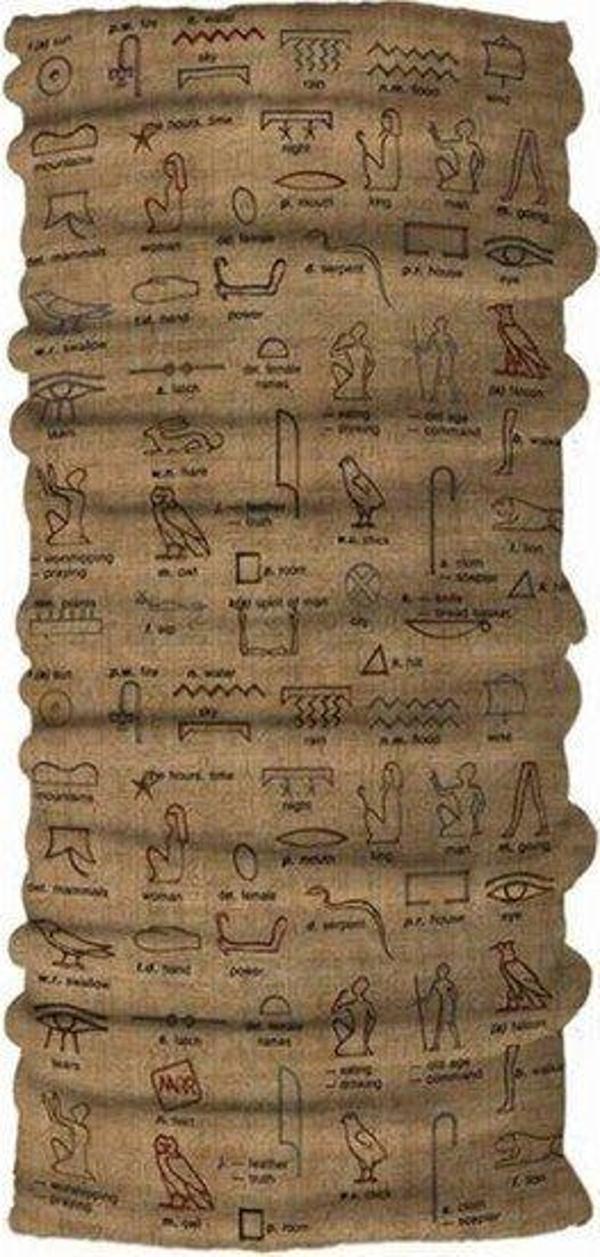 r.(a) sun
p.w. fire
n. water
sky
rain
n.m. flood
wind
mountains
hours, time
night
det. mammals
woman
det. female
p. mouth
king
man
m. going
w.r. swallow
t.d. hand
power
d. serpent
p.r. house
eye
tears
s. latch
det. female
names
— eating
— drinking
— old age
— command
falcon
w.n. hare
— leather
— truth
w.u. chick
b. walking
— worshipping
— praying
m. owl
p. room
s. cloth
— scepter
l. lion
plants
f. vip
k(a) spirit of man
city
k. — knife
— bread basket
k. hill
r.(a) sun
p.w. fire
n. water
sky
rain
n.m. flood
wind
mountains
hours, time
night
det. mammals
woman
det. female
p. mouth
king
man
m. going
w.r. swallow
t.d. hand
power
d. serpent
p.r. house
eye
tears
s. latch
det. female
names
— eating
— drinking
— old age
— command
falcon
— leather
— truth
w.u. chick
— worshipping
— praying
m. owl
p. room
s. cloth
— scepter
l. lion